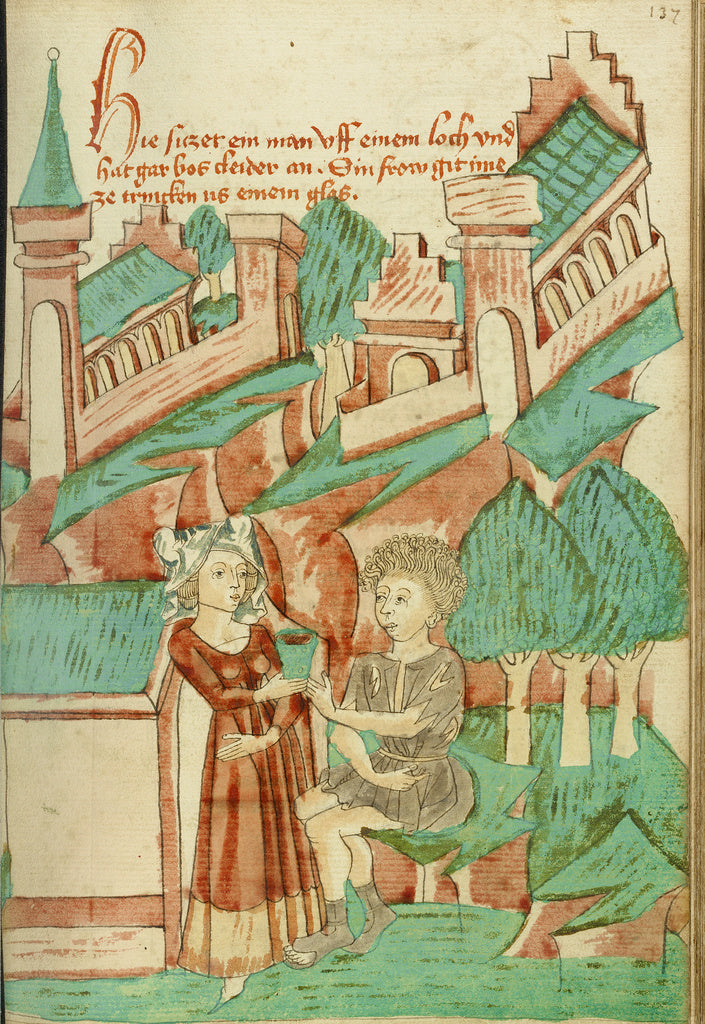 137
Hie siczet ein man vff einem loch vnd
hat gar bos cleider an. Ein frow git ime
ze trincken us einem glas.